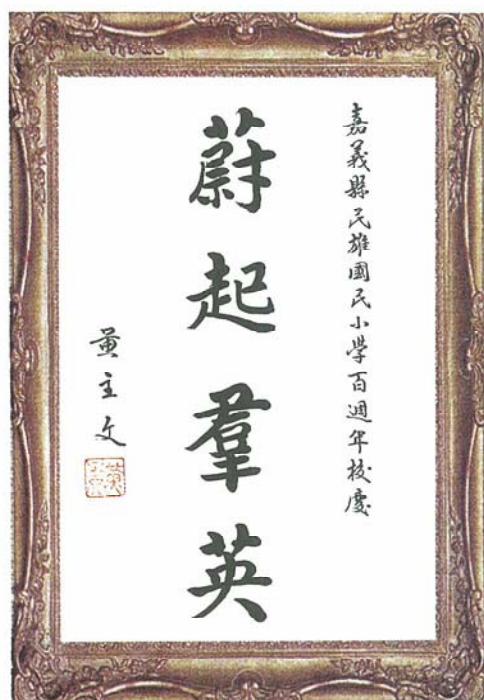 嘉義縣民雄國民小學百週年校慶
蔚起羣英
黃主文